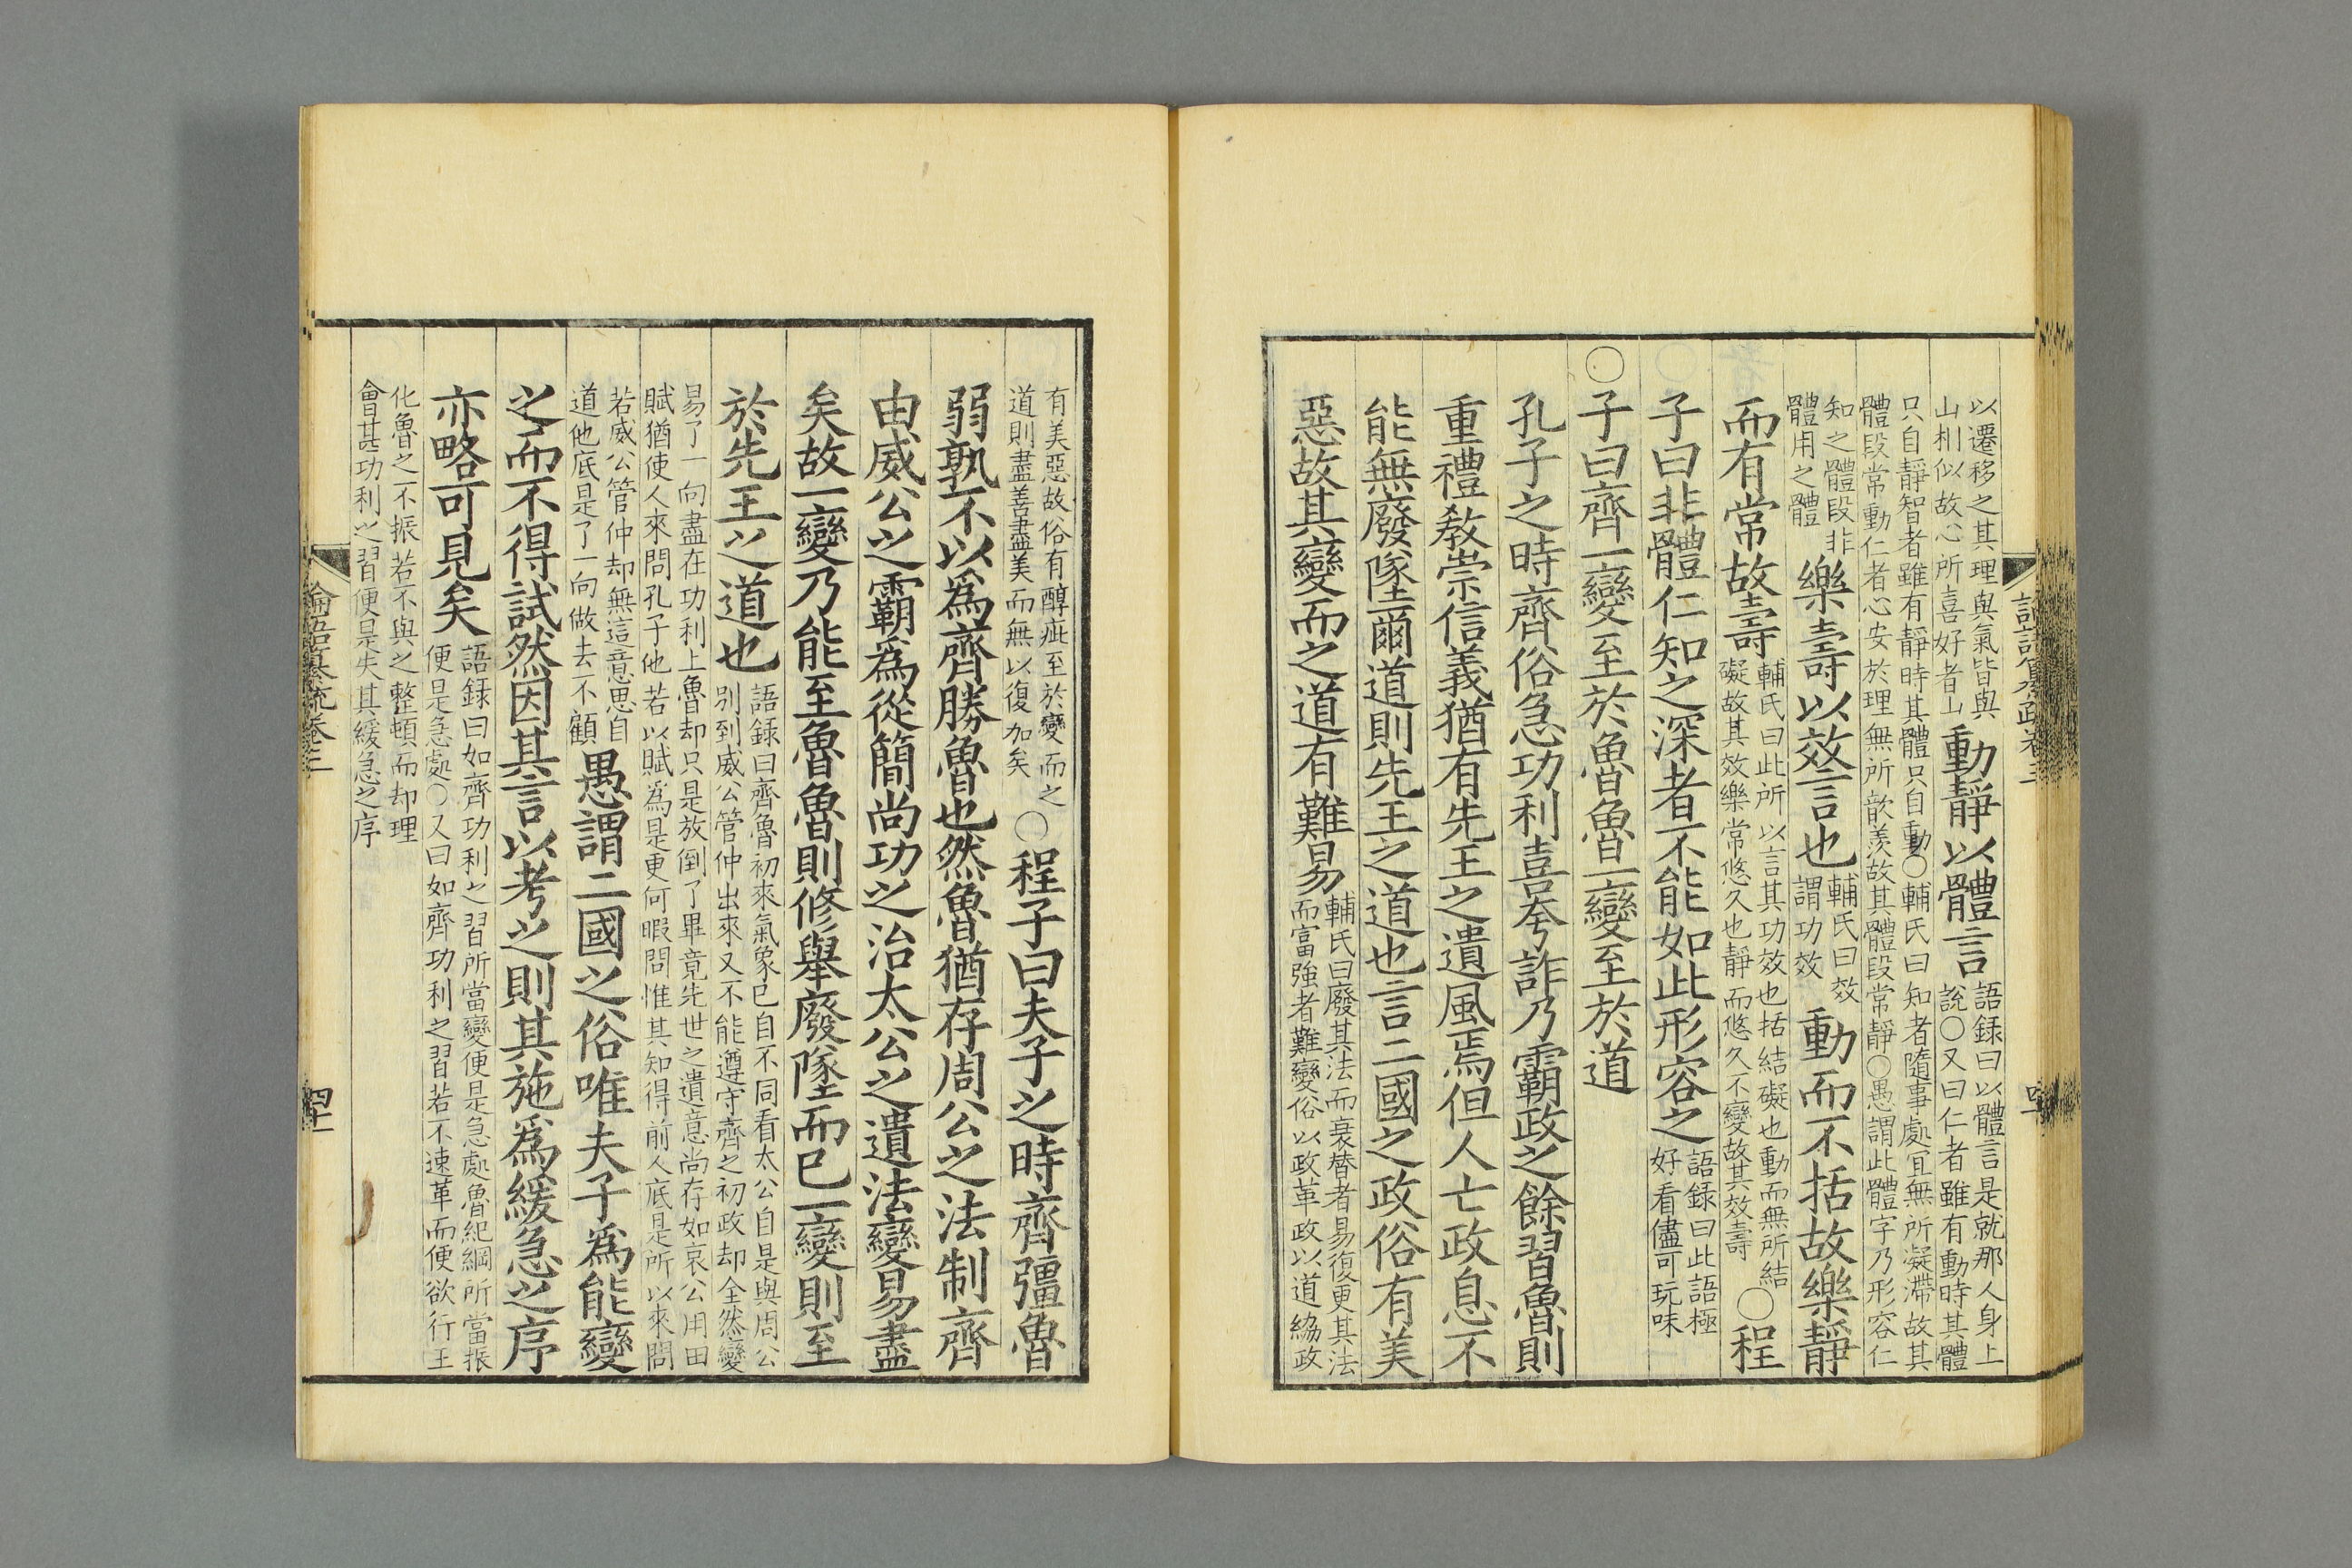 以遷移之其理與氣皆與山相似故心所喜好者山動靜以體言語録曰以體言是就那人身上說○又曰仁者雖有動時其體
只自靜智者雖有靜時其體只自動○輔氏曰知者隨事處冝無所凝滯故其體段常動仁者心安於理無所歆羨故其體段常靜○愚謂此體字乃形容仁
知之體段非體用之體樂壽以效言也輔氏曰效謂功效動而不括故樂靜
而有常故壽輔氏曰此所以言其功效也括結礙也動而無所結礙故其效樂常悠久也靜而悠久不變故其效壽○程
子曰非體仁知之深者不能如此形容之語録曰此語極好看儘可玩味
○子曰齊一變至於魯魯一變至於道
孔子之時齊俗急功利喜夸詐乃霸政之餘習魯則
重禮敎崇信義猶有先王之遺風焉但人亡政息不
能無廢墜爾道則先王之道也言二國之政俗有美
惡故其變而之道有難易輔氏曰廢其法而衰替者易復更其法而富強者難變俗以政革政以道政
有美惡故俗有醇疵至於變而之道則盡善盡美而無以復加矣○程子曰夫子之時齊彊魯
弱孰不以爲齊勝魯也然魯猶存周公之法制齊
由威公之霸爲從簡尚功之治太公之遺法變易盡
矣故一變乃能至魯魯則修舉廢墜而已一變則至
於先王之道也語録曰齊魯初來氣象已自不同看太公自是與周公別到威公管仲出來又不能遵守齊之初政却全然變
易了一向盡在功利上魯却只是放倒了畢竟先世之遺意尚存如哀公用田賦猶使人來問孔子他若以賦爲是更何暇問惟其知得前人底是所以來問
若威公管仲却無這意思自道他底是了一向做去不顧愚謂二國之俗唯夫子爲能變
之而不得試然因其言以考之則其施爲緩急之序
亦略可見矣語録曰如齊功利之習所當變便是急處魯紀綱所當振便是急處○又曰如齊功利之習若不速革而便欲行王
化魯之不振若不與之整頓而却理會甚功利之習便是失其緩急之序
論語纂疏卷三